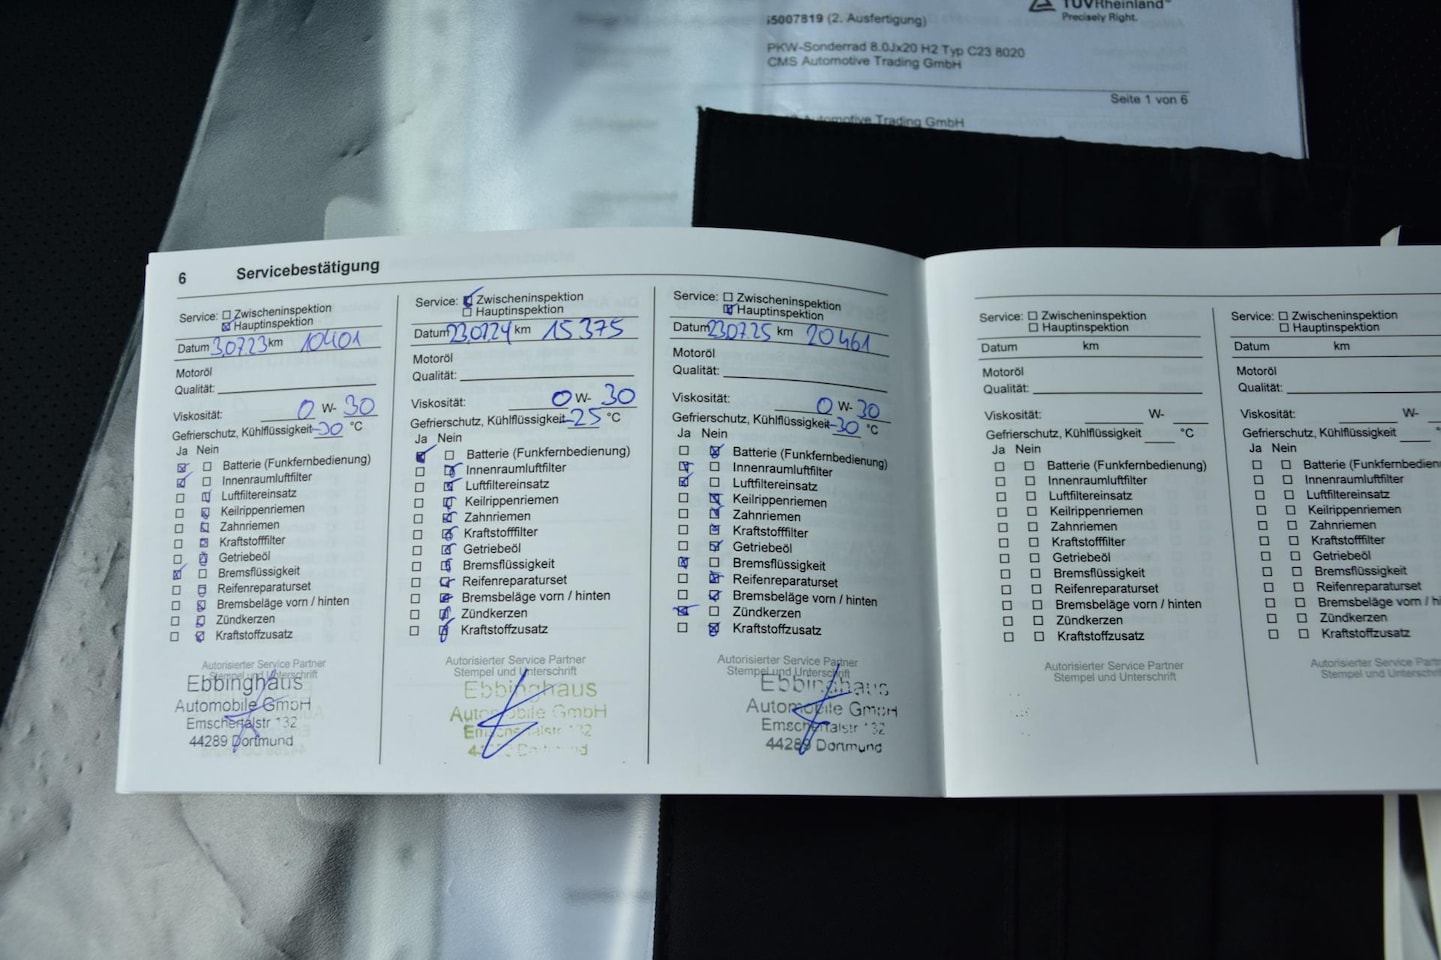 TÜVRheinland®
Precisely Right.
i5007819 (2. Ausfertigung)
PKW-Sonderrad 8.0Jx20 H2 Typ C23 8020
CMS Automotive Trading GmbH
Seite 1 von 6
Automotive Trading GmbH
6 Servicebestätigung
Service: Zwischeninspektion
Hauptinspektion
Datum 30723 km 10401
Motoröl
Qualität:
Viskosität: 0 W- 30
Gefrierschutz, Kühlflüssigkeit -30 °C
Ja Nein
Batterie (Funkfernbedienung)
Innenraumluftfilter
Luftfiltereinsatz
Keilrippenriemen
Zahnriemen
Kraftstofffilter
Getriebeöl
Bremsflüssigkeit
Reifenreparaturset
Bremsbeläge vorn / hinten
Zündkerzen
Kraftstoffzusatz
Autorisierter Service Partner
Stempel und Unterschrift
Ebbinghaus
Automobile GmbH
Emschertalstr 132
44289 Dortmund
Service: Zwischeninspektion
Hauptinspektion
Datum 230724 km 15375
Motoröl
Qualität:
Viskosität: 0 W- 30
Gefrierschutz, Kühlflüssigkeit -25 °C
Ja Nein
Batterie (Funkfernbedienung)
Innenraumluftfilter
Luftfiltereinsatz
Keilrippenriemen
Zahnriemen
Kraftstofffilter
Getriebeöl
Bremsflüssigkeit
Reifenreparaturset
Bremsbeläge vorn / hinten
Zündkerzen
Kraftstoffzusatz
Autorisierter Service Partner
Stempel und Unterschrift
Ebbinghaus
Automobile GmbH
Emschertalstr 132
Dortmund
Service: Zwischeninspektion
Hauptinspektion
Datum 230725 km 20461
Motoröl
Qualität:
Viskosität: 0 W- 30
Gefrierschutz, Kühlflüssigkeit -30 °C
Ja Nein
Batterie (Funkfernbedienung)
Innenraumluftfilter
Luftfiltereinsatz
Keilrippenriemen
Zahnriemen
Kraftstofffilter
Getriebeöl
Bremsflüssigkeit
Reifenreparaturset
Bremsbeläge vorn / hinten
Zündkerzen
Kraftstoffzusatz
Autorisierter Service Partner
Stempel und Unterschrift
Ebbinghaus
Automobile GmbH
Emschertalstr 132
44289 Dortmund
Service: Zwischeninspektion
Hauptinspektion
Datum km
Motoröl
Qualität:
Viskosität: W-
Gefrierschutz, Kühlflüssigkeit °C
Ja Nein
Batterie (Funkfernbedienung)
Innenraumluftfilter
Luftfiltereinsatz
Keilrippenriemen
Zahnriemen
Kraftstofffilter
Getriebeöl
Bremsflüssigkeit
Reifenreparaturset
Bremsbeläge vorn / hinten
Zündkerzen
Kraftstoffzusatz
Autorisierter Service Partner
Stempel und Unterschrift
Service: Zwischeninspektion
Hauptinspektion
Datum km
Motoröl
Qualität:
Viskosität: W-
Gefrierschutz, Kühlflüssigkeit °
Ja Nein
Batterie (Funkfernbedien
Innenraumluftfilter
Luftfiltereinsatz
Keilrippenriemen
Zahnriemen
Kraftstofffilter
Getriebeöl
Bremsflüssigkeit
Reifenreparaturset
Bremsbeläge vorn / hi
Zündkerzen
Kraftstoffzusatz
Autorisierter Service Part
Stempel und Unterschr